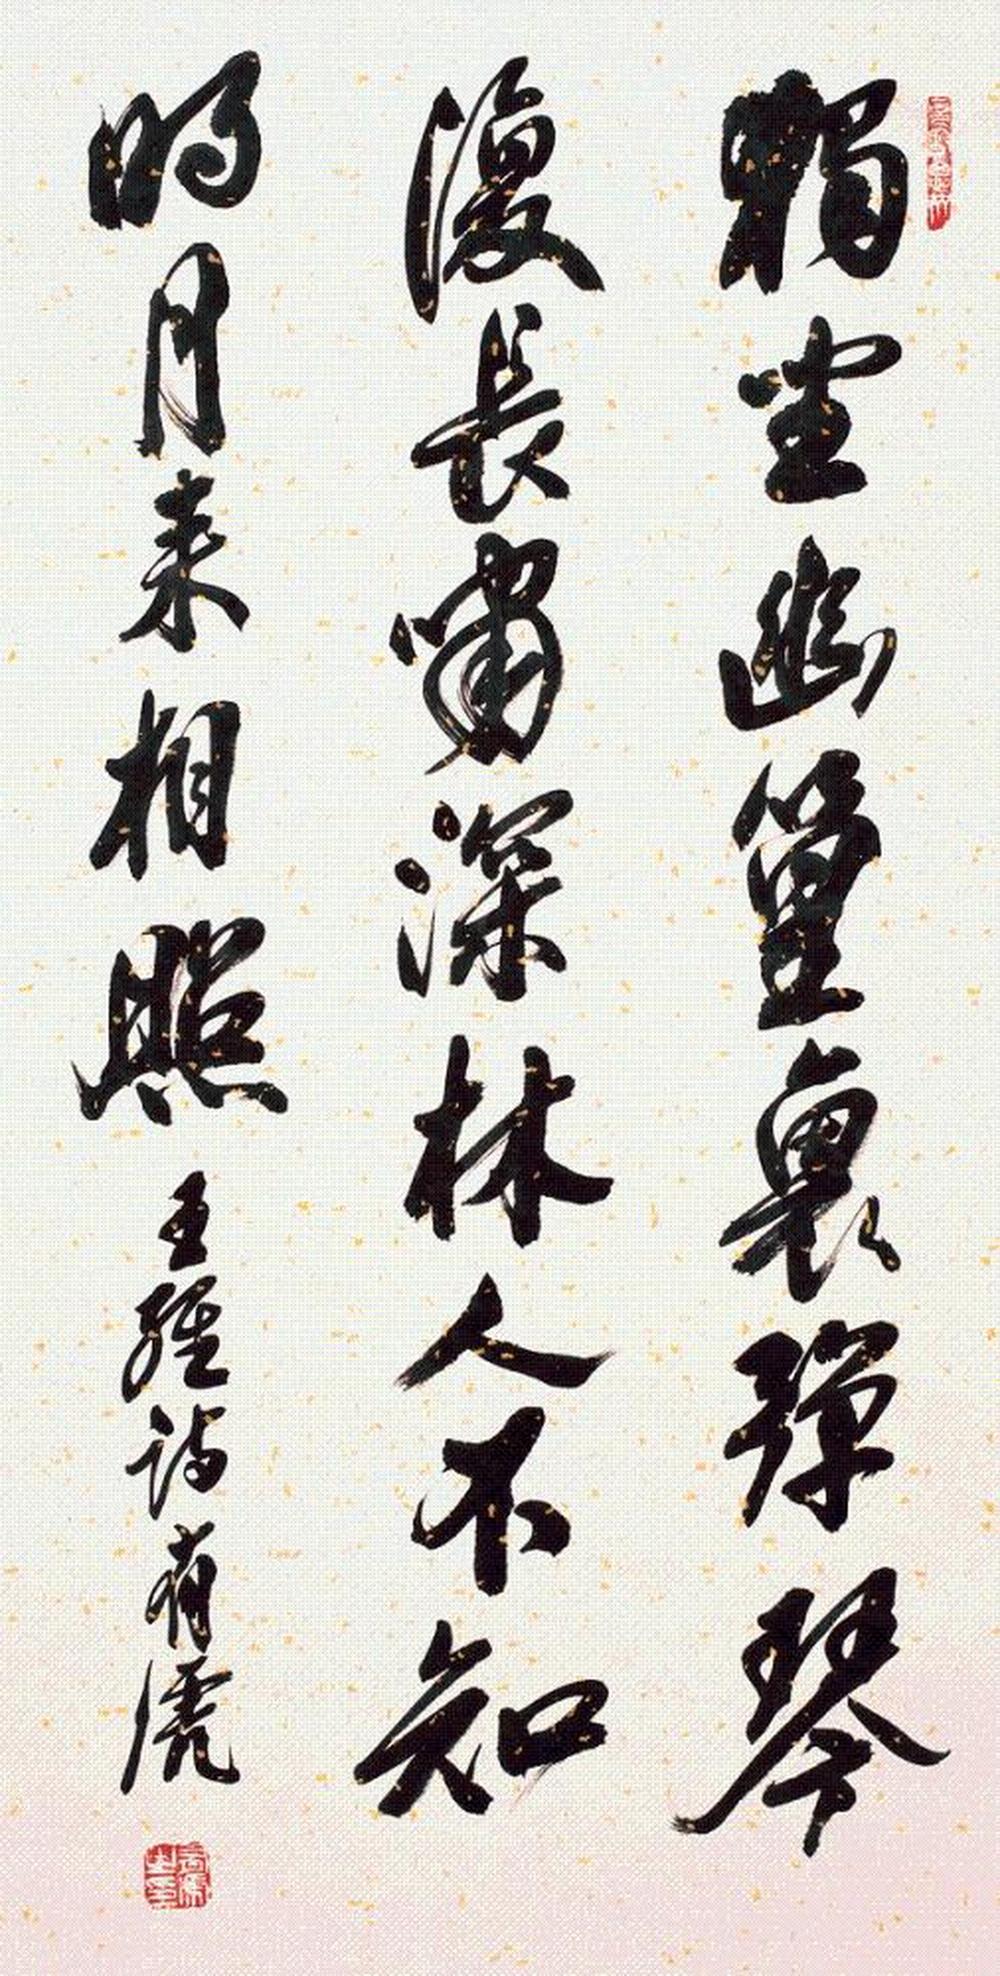 獨坐幽篁裏彈琴
復長嘯深林人不知
明月来相照 王維詩 有虎